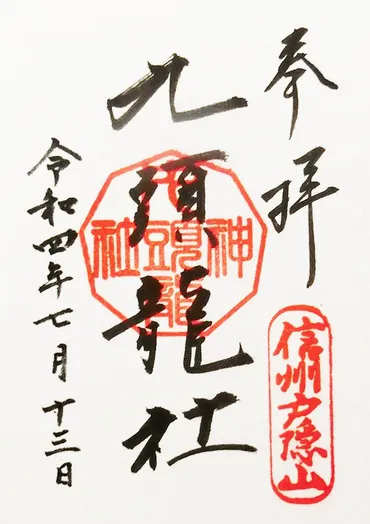 奉拝
信州戸隠山
九頭龍社
九頭龍神社
令和四年七月十三日